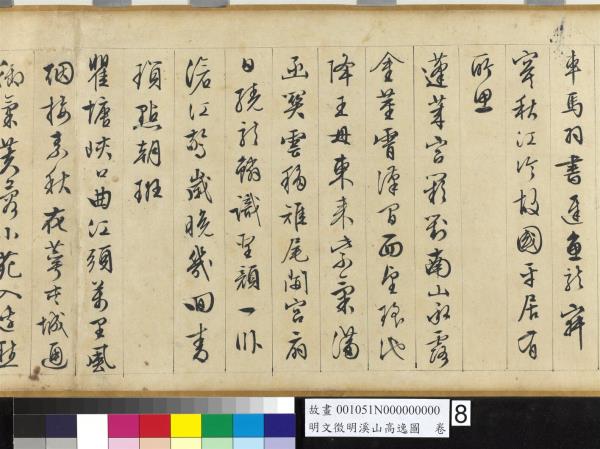 車馬羽書遲魚龍寂
寞秋江冷故國平居有
所思
蓬萊宮闕對南山承露
金莖霄漢間西望瑤池
降王母東來紫氣滿
函關雲移雉尾開宮扇
日繞龍鱗識聖顏一臥
滄江驚歲晚幾回青
瑣點朝班
瞿塘峽口曲江頭萬里風
烟接素秋花萼夾城通
御氣芙蓉小苑入邊愁
故畫 001051N000000000
明文徵明溪山高逸圖 卷
8